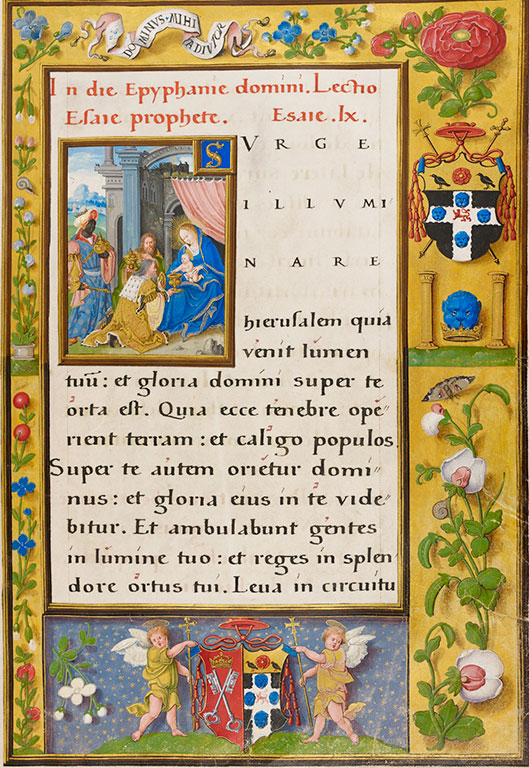 DOMINVS · MIHI
ADIVTOR
In die Epyphanie domini. Lectio
Esaie prophete. Esaie. lx.
SVRGE
ILLVMI
NARE
hierusalem quia
venit lumen
tuū: et gloria domini super te
orta est. Quia ecce tenebre ope/
rient terram: et caligo populos.
Super te autem orietur domi/
nus: et gloria eius in te vide/
bitur. Et ambulabunt gentes
in lumine tuo: et reges in splen/
dore ortus tui. Leua in circuitu